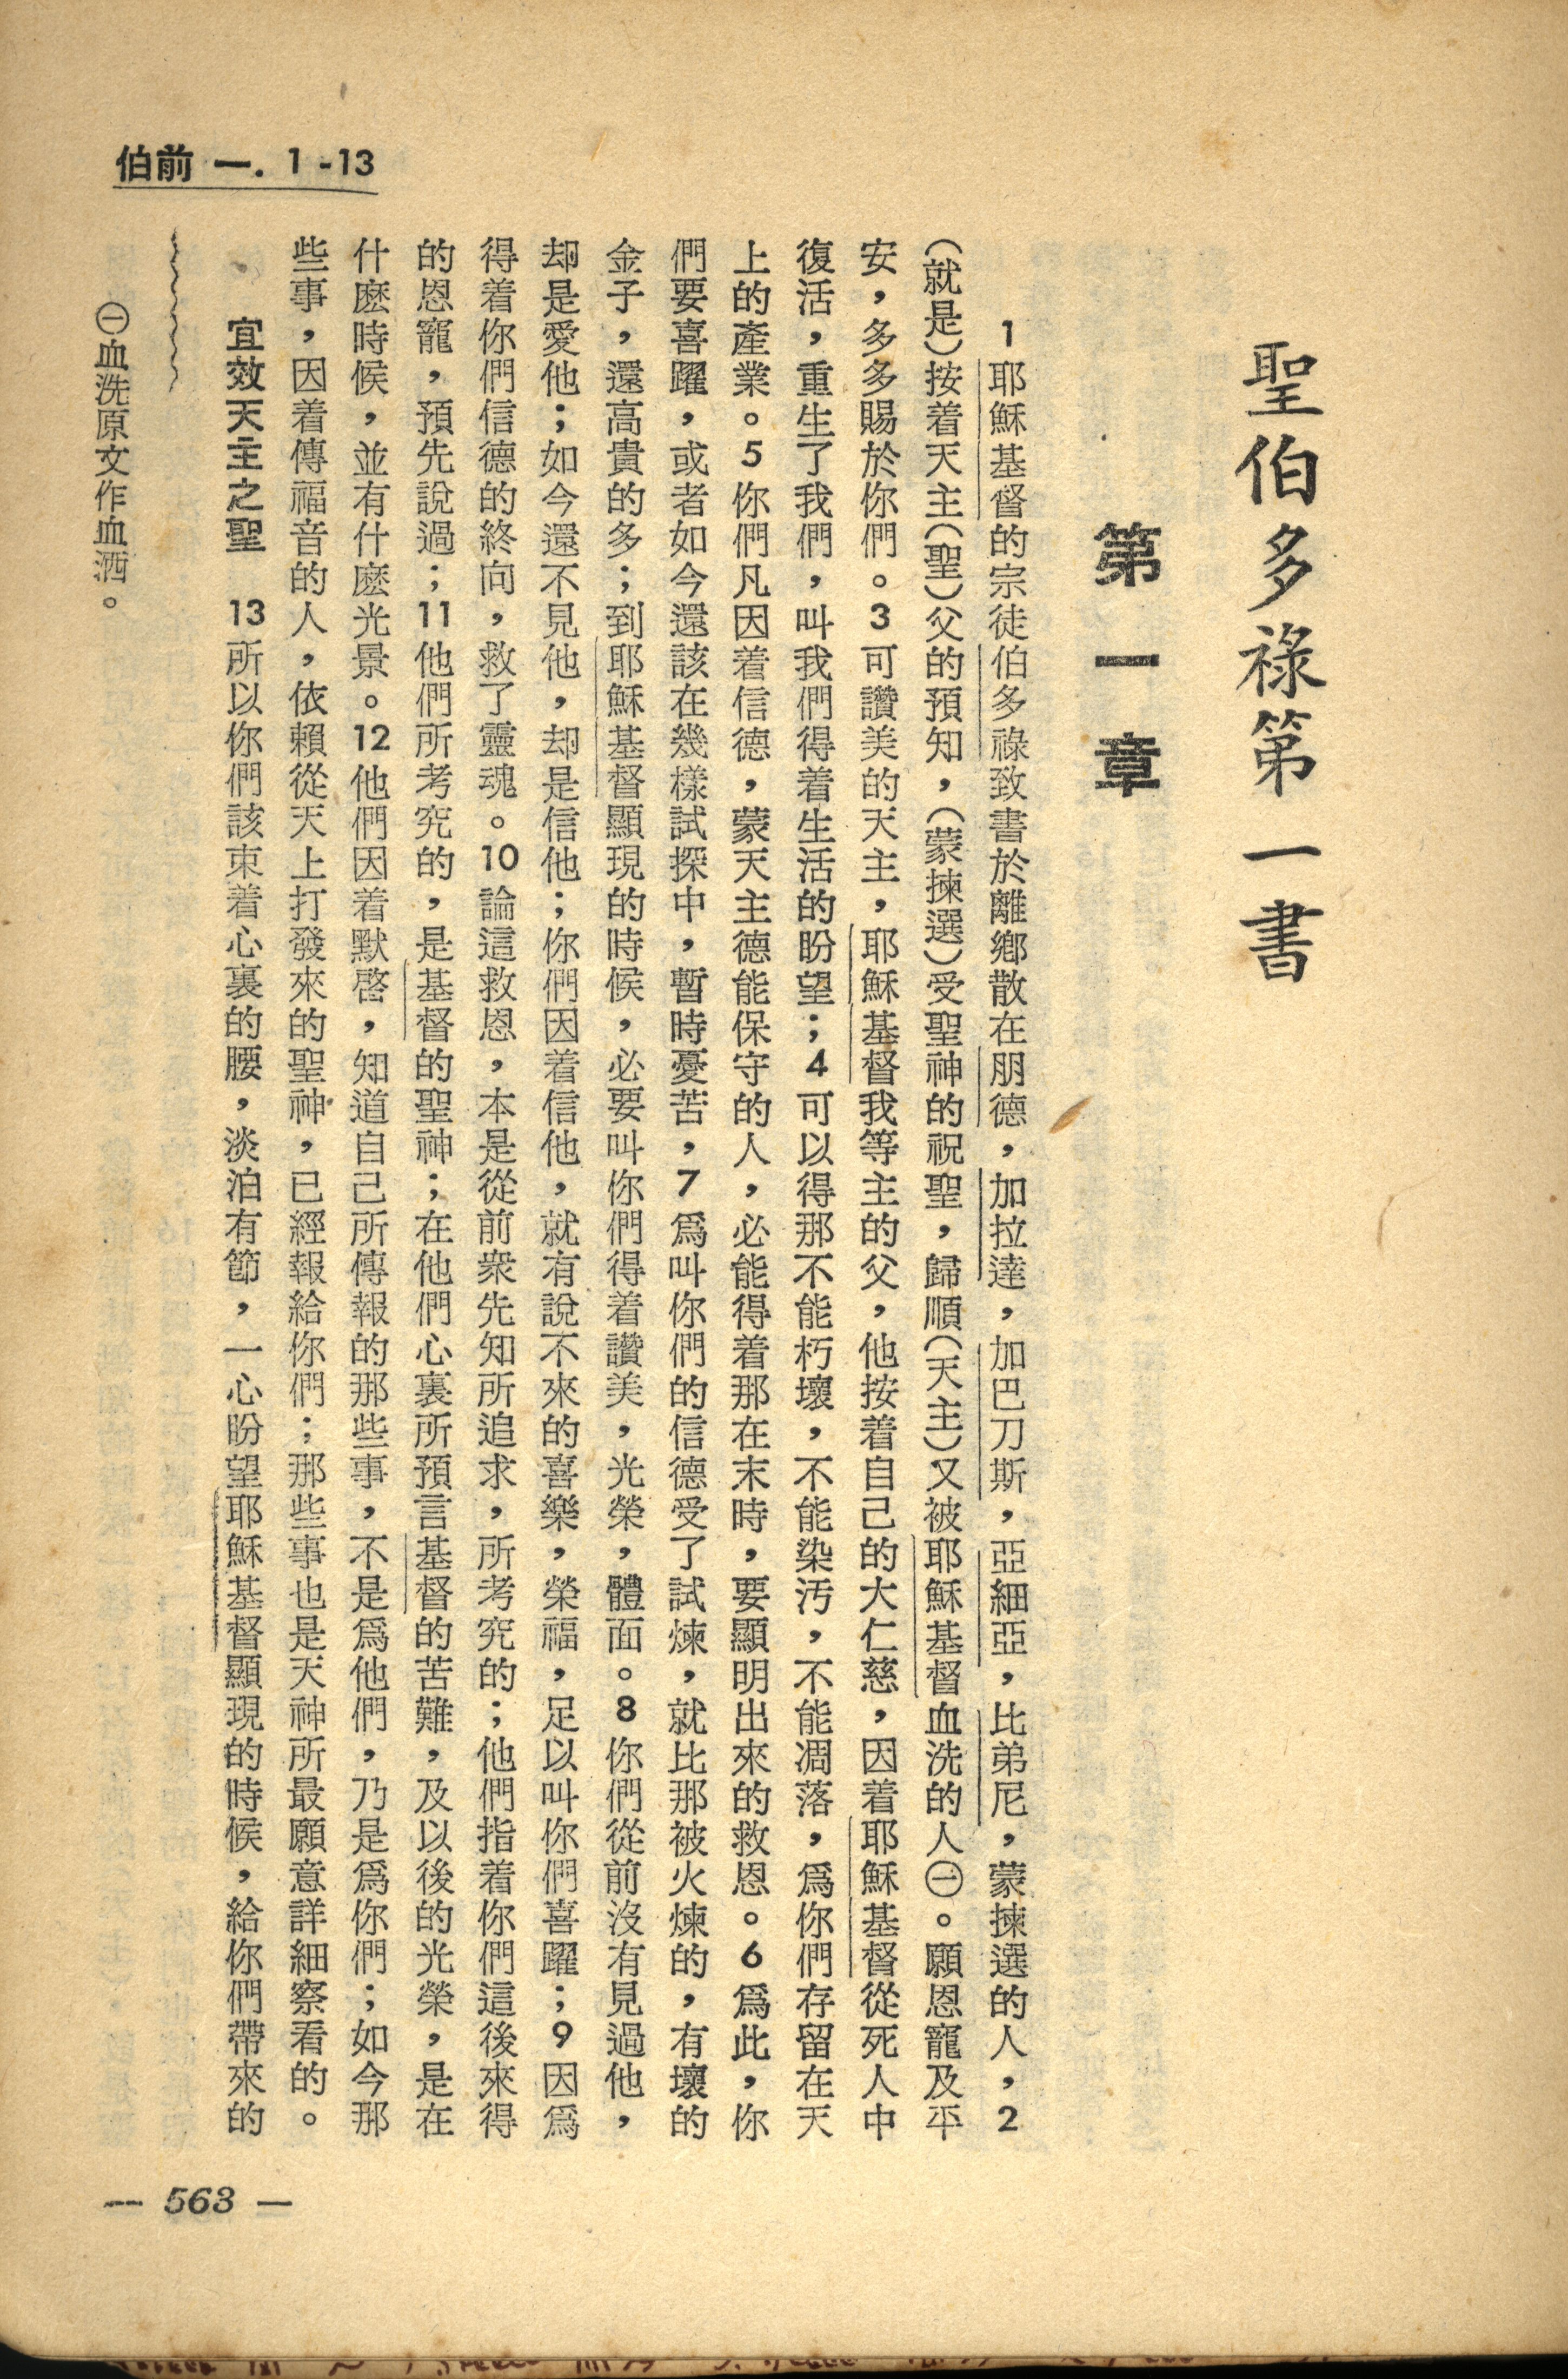 伯前 一. 1-13
聖伯多祿第一書
第一章
1 耶穌基督的宗徒伯多祿致書於離鄉散在朋德，加拉達，加巴刀斯，亞細亞，比弟尼，蒙揀選的人，2
（就是）按着天主（聖）父的預知，（蒙揀選）受聖神的祝聖，歸順（天主）又被耶穌基督血洗的人㊀。願恩寵及平
安，多多賜於你們。3 可讚美的天主，耶穌基督我等主的父，他按着自己的大仁慈，因着耶穌基督從死人中
復活，重生了我們，叫我們得着生活的盼望；4 可以得那不能朽壞，不能染汚，不能凋落，爲你們存留在天
上的產業。5 你們凡因着信德，蒙天主德能保守的人，必能得着那在末時，要顯明出來的救恩。6 爲此，你
們要喜躍，或者如今還該在幾樣試探中，暫時憂苦，7 爲叫你們的信德受了試煉，就比那被火煉的，有壞的
金子，還高貴的多；到耶穌基督顯現的時候，必要叫你們得着讚美，光榮，體面。8 你們從前沒有見過他，
却是愛他；如今還不見他，却是信他；你們因着信他，就有說不來的喜樂，榮福，足以叫你們喜躍；9 因爲
得着你們信德的終向，救了靈魂。10 論這救恩，本是從前衆先知所追求，所考究的；他們指着你們這後來得
的恩寵，預先說過；11 他們所考究的，是基督的聖神；在他們心裏所預言基督的苦難，及以後的光榮，是在
什麽時候，並有什麽光景。12 他們因着默啓，知道自己所傳報的那些事，不是爲他們，乃是爲你們；如今那
些事，因着傳福音的人，依賴從天上打發來的聖神，已經報給你們；那些事也是天神所最願意詳細察看的。
宜效天主之聖 13 所以你們該束着心裏的腰，淡泊有節，一心盼望耶穌基督顯現的時候，給你們帶來的
㊀血洗原文作血洒。
— 563 —